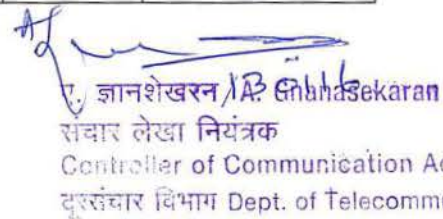 ए. ज्ञानशेखरन / A. Gnanasekaran
संचार लेखा नियंत्रक
Controller of Communication Ac
दूरसंचार विभाग Dept. of Telecomm